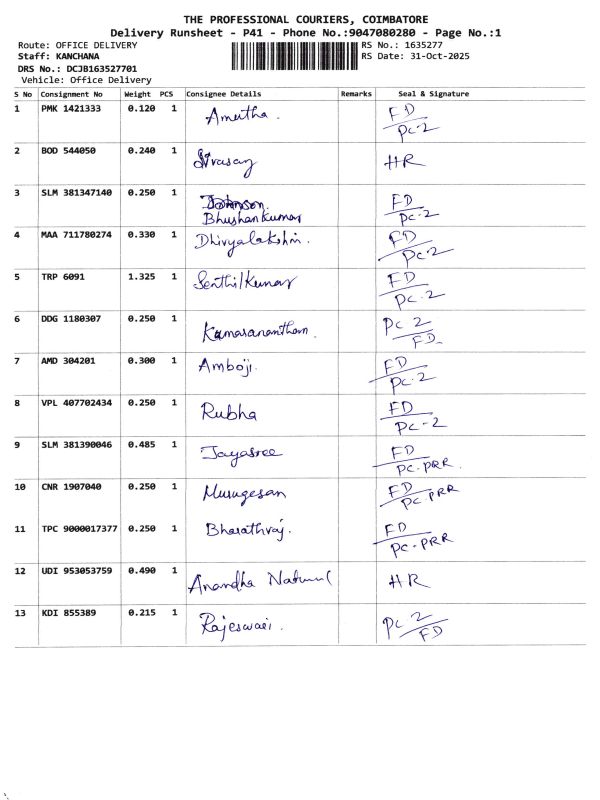 THE PROFESSIONAL COURIERS, COIMBATORE
Delivery Runsheet - P41 - Phone No.:9047080280 - Page No.:1
Route: OFFICE DELIVERY RS No.: 1635277
Staff: KANCHANA RS Date: 31-Oct-2025
DRS No.: DCJB163527701
Vehicle: Office Delivery
S No Consignment No Weight PCS Consignee Details Remarks Seal & Signature
1 PMK 1421333 0.120 1 Amutha. FD
PC-2
2 BOD 544050 0.240 1 HR
3 SLM 381347140 0.250 1 FD
Bhushankumar PC-2
4 MAA 711780274 0.330 1 Dhivyalakshmi. FD
PC-2
5 TRP 6091 1.325 1 Senthilkumar FD
PC-2
6 DDG 1180307 0.250 1 Kumaranantham. PC 2
FD
7 AMD 304201 0.300 1 Amboji. FD
PC-2
8 VPL 407702434 0.250 1 Rubha FD
PC-2
9 SLM 381390046 0.485 1 Jayasree FD
PC-PRR.
10 CNR 1907040 0.250 1 Murugesan FD
PC-PRR
11 TPC 9000017377 0.250 1 Bharathraj. FD
PC-PRR
12 UDI 953053759 0.490 1 Anandha HR
13 KDI 855389 0.215 1 Rajeswari. PC 2
FD